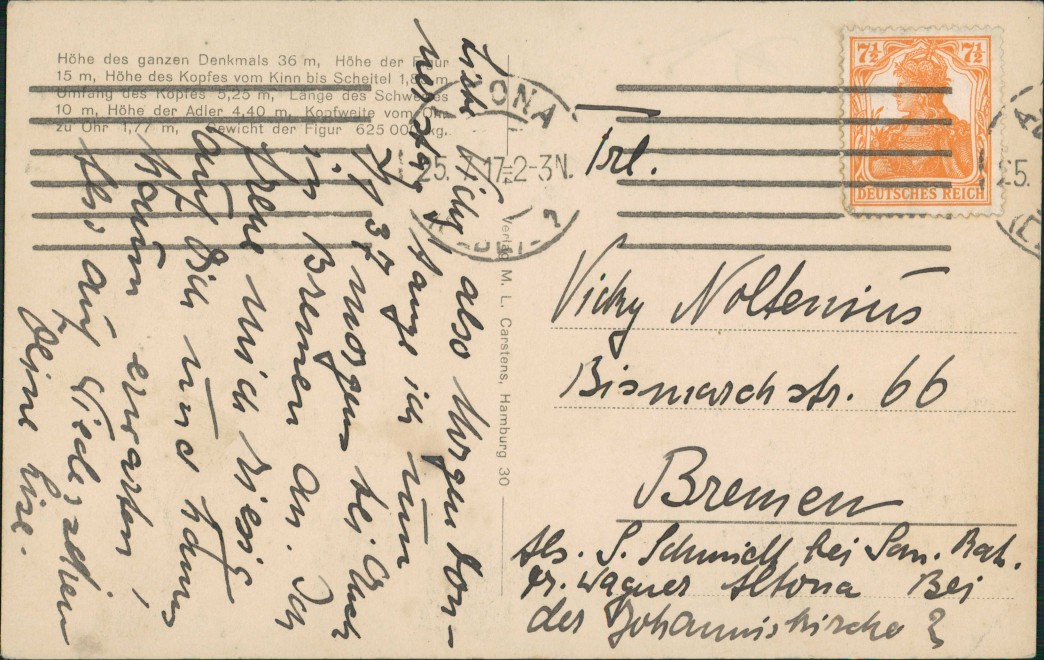 Höhe des ganzen Denkmals 36 m, Höhe der Figur
15 m, Höhe des Kopfes vom Kinn bis Scheitel 1,8 m
Umfang des Kopfes 5,25 m, Länge des Schwertes
10 m, Höhe der Adler 4,40 m, Kopfweite vom Ohr
zu Ohr 1,77 m, Gewicht der Figur 625 000 kg.
Liebe Vicky also Morgen Don-
nerstag lange ich um
morgens bei Euch
in Bremen an. Ich
freue mich riesig
auf Dich und kann
kaum erwarten,
Als, auf Wiedersehen
Deine Lise.
Verlag M. L. Carstens, Hamburg 30
ONA
25. 7. 17. 2-3N.
7½ 7½
DEUTSCHES REICH
A
25.
Frl.
Vicky Noltenius
Bismarckstr. 66
Bremen
Abs. S. Schmidt bei San. Rat.
Dr. Wagner Altona Bei
der Johanniskirche 2